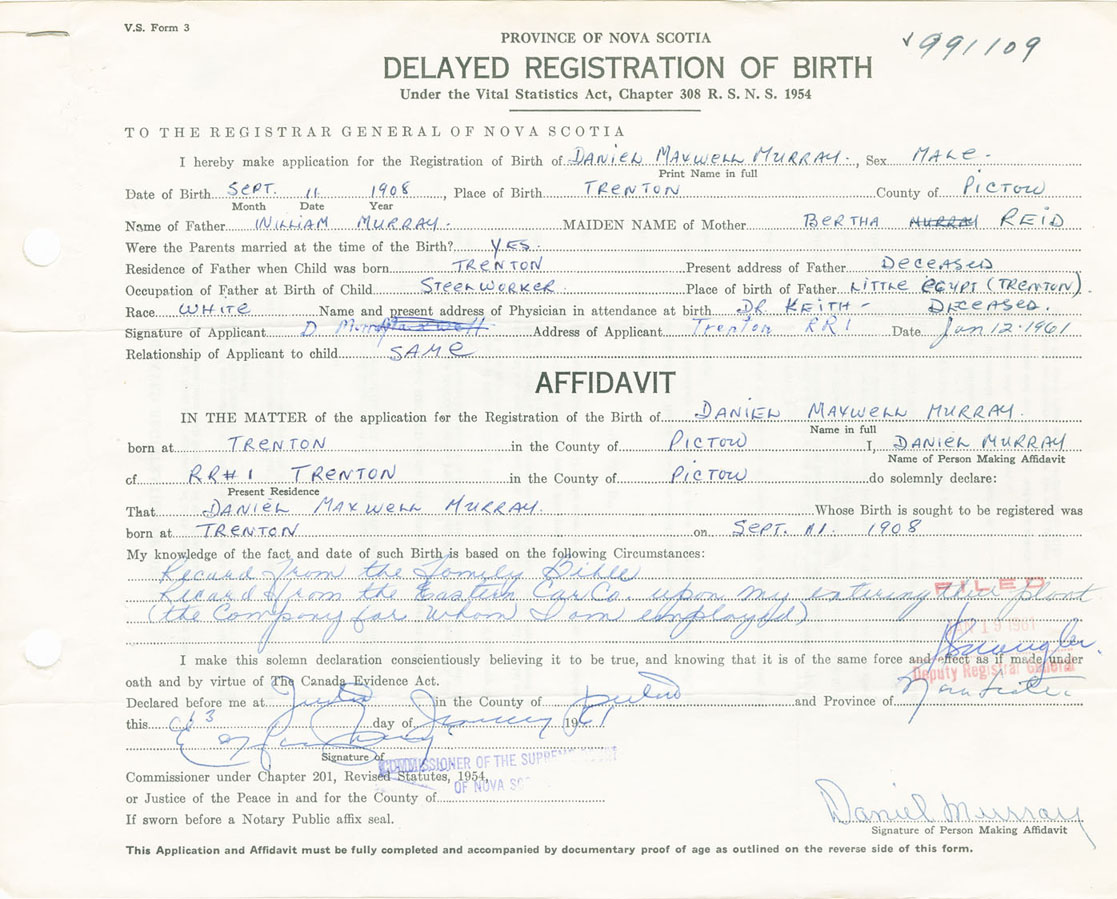 V.S. Form 3
PROVINCE OF NOVA SCOTIA
991109
DELAYED REGISTRATION OF BIRTH
Under the Vital Statistics Act, Chapter 308 R. S. N. S. 1954
TO THE REGISTRAR GENERAL OF NOVA SCOTIA
I hereby make application for the Registration of Birth of DANIEL MAXWELL MURRAY., Sex MALE.
Print Name in full
Date of Birth SEPT. 11 1908, Place of Birth TRENTON County of PICTOU
Month Date Year
Name of Father WILLIAM MURRAY. MAIDEN NAME of Mother BERTHA MURRAY REID
Were the Parents married at the time of the Birth? YES.
Residence of Father when Child was born TRENTON Present address of Father DECEASED
Occupation of Father at Birth of Child STEELWORKER Place of birth of Father LITTLE EGYPT (TRENTON).
Race WHITE Name and present address of Physician in attendance at birth DR. KEITH - DECEASED.
Signature of Applicant D Address of Applicant Trenton RR1 Date Jan 12. 1961
Relationship of Applicant to child SAME
AFFIDAVIT
IN THE MATTER of the application for the Registration of the Birth of DANIEL MAXWELL MURRAY.
Name in full
born at TRENTON in the County of PICTOU I, DANIEL MURRAY
Name of Person Making Affidavit
of RR#1 TRENTON in the County of PICTOU do solemnly declare:
Present Residence
That DANIEL MAXWELL MURRAY. Whose Birth is sought to be registered was
born at TRENTON on SEPT. 11. 1908
My knowledge of the fact and date of such Birth is based on the following Circumstances:
Record from the Family Bible
Record from the Eastern Car Co. upon my entering their plant
(the Company for whom I am employed)
FILED
19 1961
Deputy Registrar General
I make this solemn declaration conscientiously believing it to be true, and knowing that it is of the same force and effect as if made under
oath and by virtue of The Canada Evidence Act.
Declared before me at in the County of Pictou and Province of Nova Scotia
this day of January 1961
Signature of
COMMISSIONER OF THE SUPREME COURT
OF NOVA SC
Commissioner under Chapter 201, Revised Statutes, 1954,
or Justice of the Peace in and for the County of
If sworn before a Notary Public affix seal.
Daniel Murray
Signature of Person Making Affidavit
This Application and Affidavit must be fully completed and accompanied by documentary proof of age as outlined on the reverse side of this form.